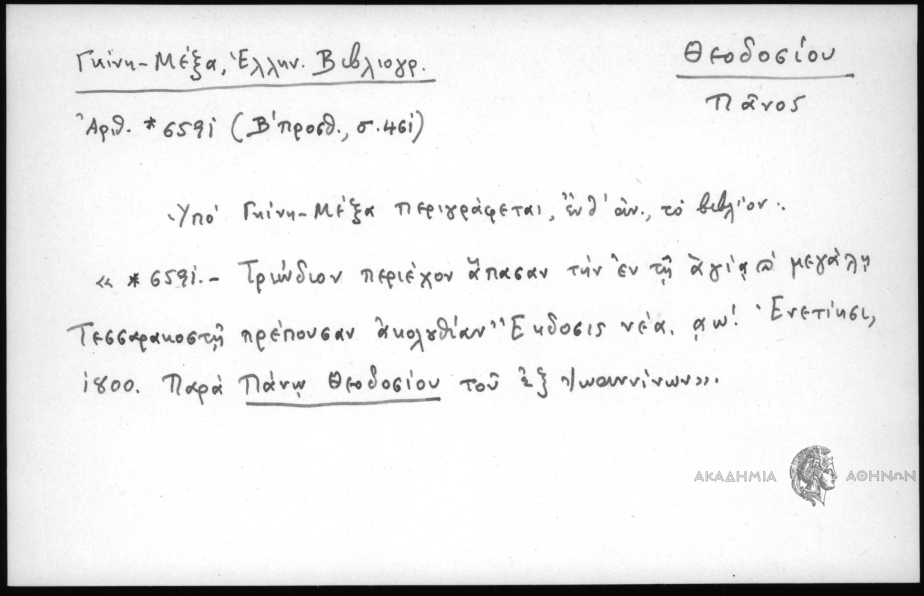 Γκίνη-Μέξα, Ἑλλην. Βιβλιογρ.
Θεοδοσίου
Πᾶνος
Ἀριθ. *6591 (Β' προσθ., σ. 461)
Ὑπὸ Γκίνη-Μέξα περιγράφεται, ἔνθ' ἀν., τὸ βιβλίον:
« *6591.- Τριῴδιον περιέχον ἅπασαν τὴν ἐν τῇ ἁγίᾳ μεγάλῃ
Τεσσαρακοστῇ πρέπουσαν ἀκολουθίαν Ἔκδοσις νέα. ͵αω'. Ἐνετίῃσι,
1800. Παρὰ Πάνῳ Θεοδοσίου τοῦ ἐξ Ἰωαννίνων».
ΑΚΑΔΗΜΙΑ ΑΘΗΝΩΝ